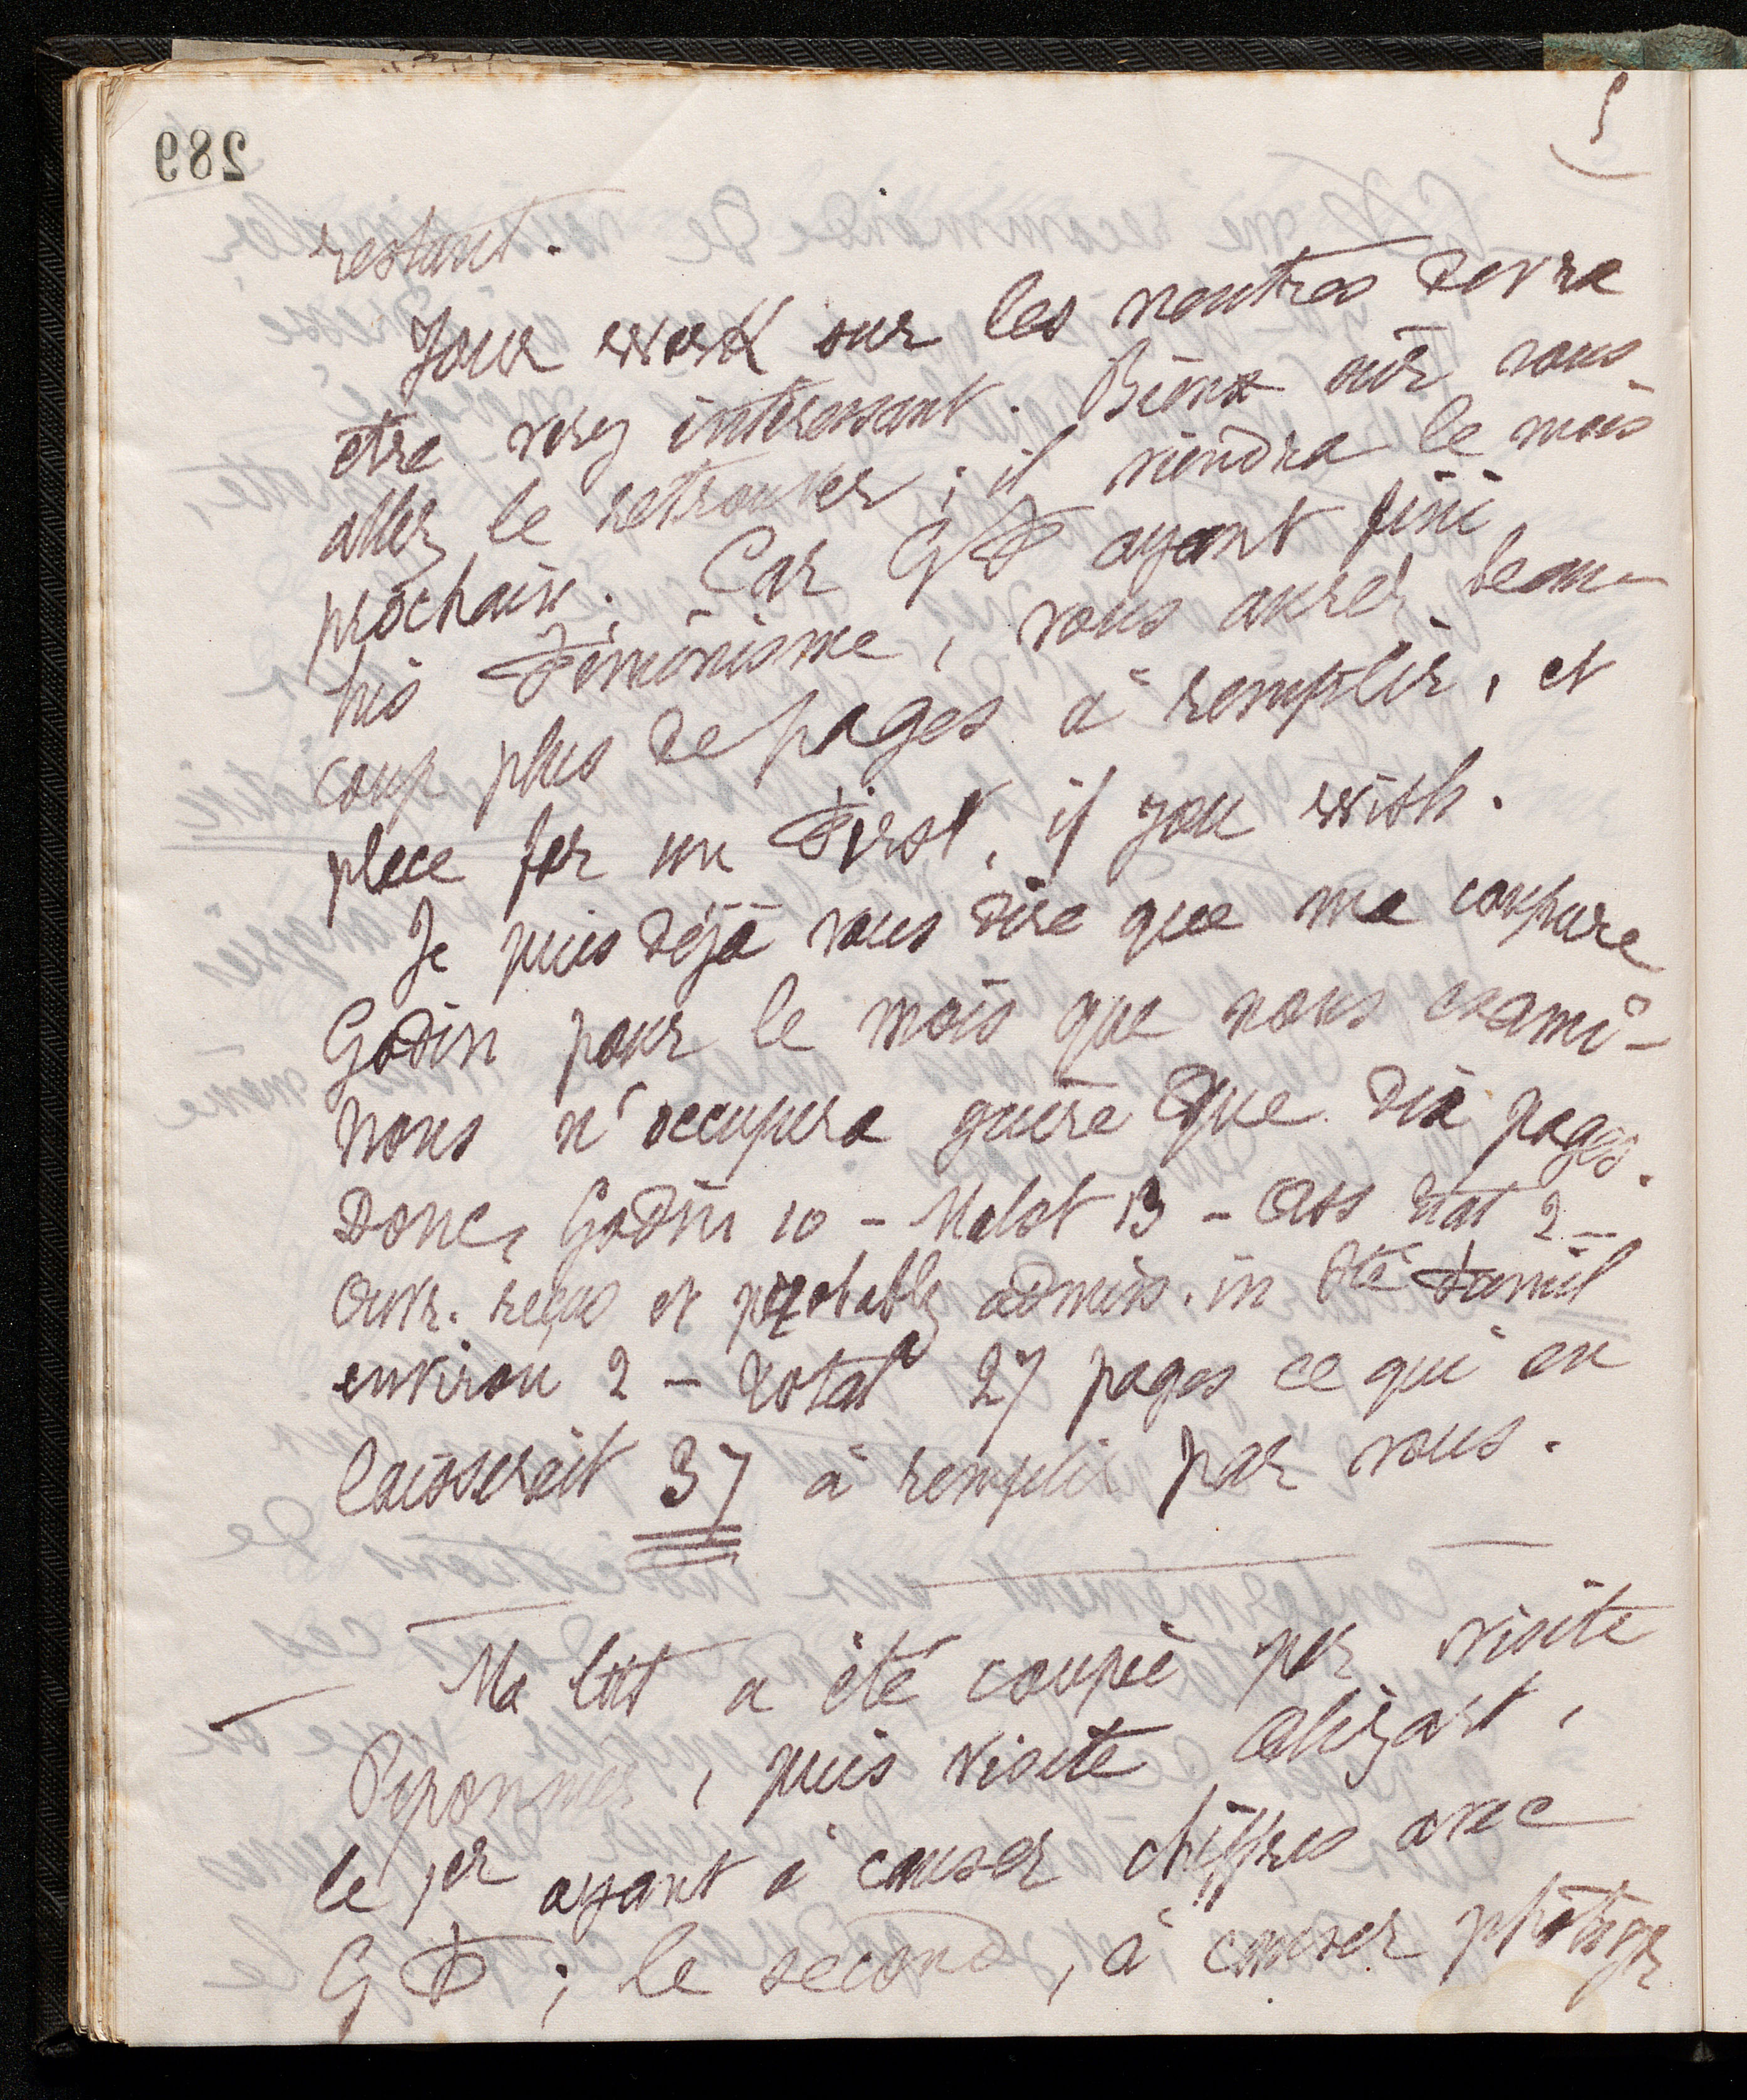 289
5
restant.
Your work sur les neutres devra
être very intéressant. Bien sûr vous
allez le retrouver ; il viendra le mois
prochain. Car GF ayant fini
his Féminisme, vous aurez beau-
coup plus de pages à remplir, et
place for un First, if you wish.
Je puis déjà vous dire que ma coupure
Godin pour le mois que nous exami-
nons n'occupera guère que dix pages.
Donc, Godin 10 - Malot 13 - Ass nat 2 -
Ouvr. reçus et probably admis. in Sté Famil
environ 2 - Total 27 pages ce qui en
laisserait 37 à remplir par vous.
Ma lett a été coupée par visite
Piponnier, puis visite Alizart,
le 1er ayant à causer chiffres avec
GF ; le second, à causer photogr